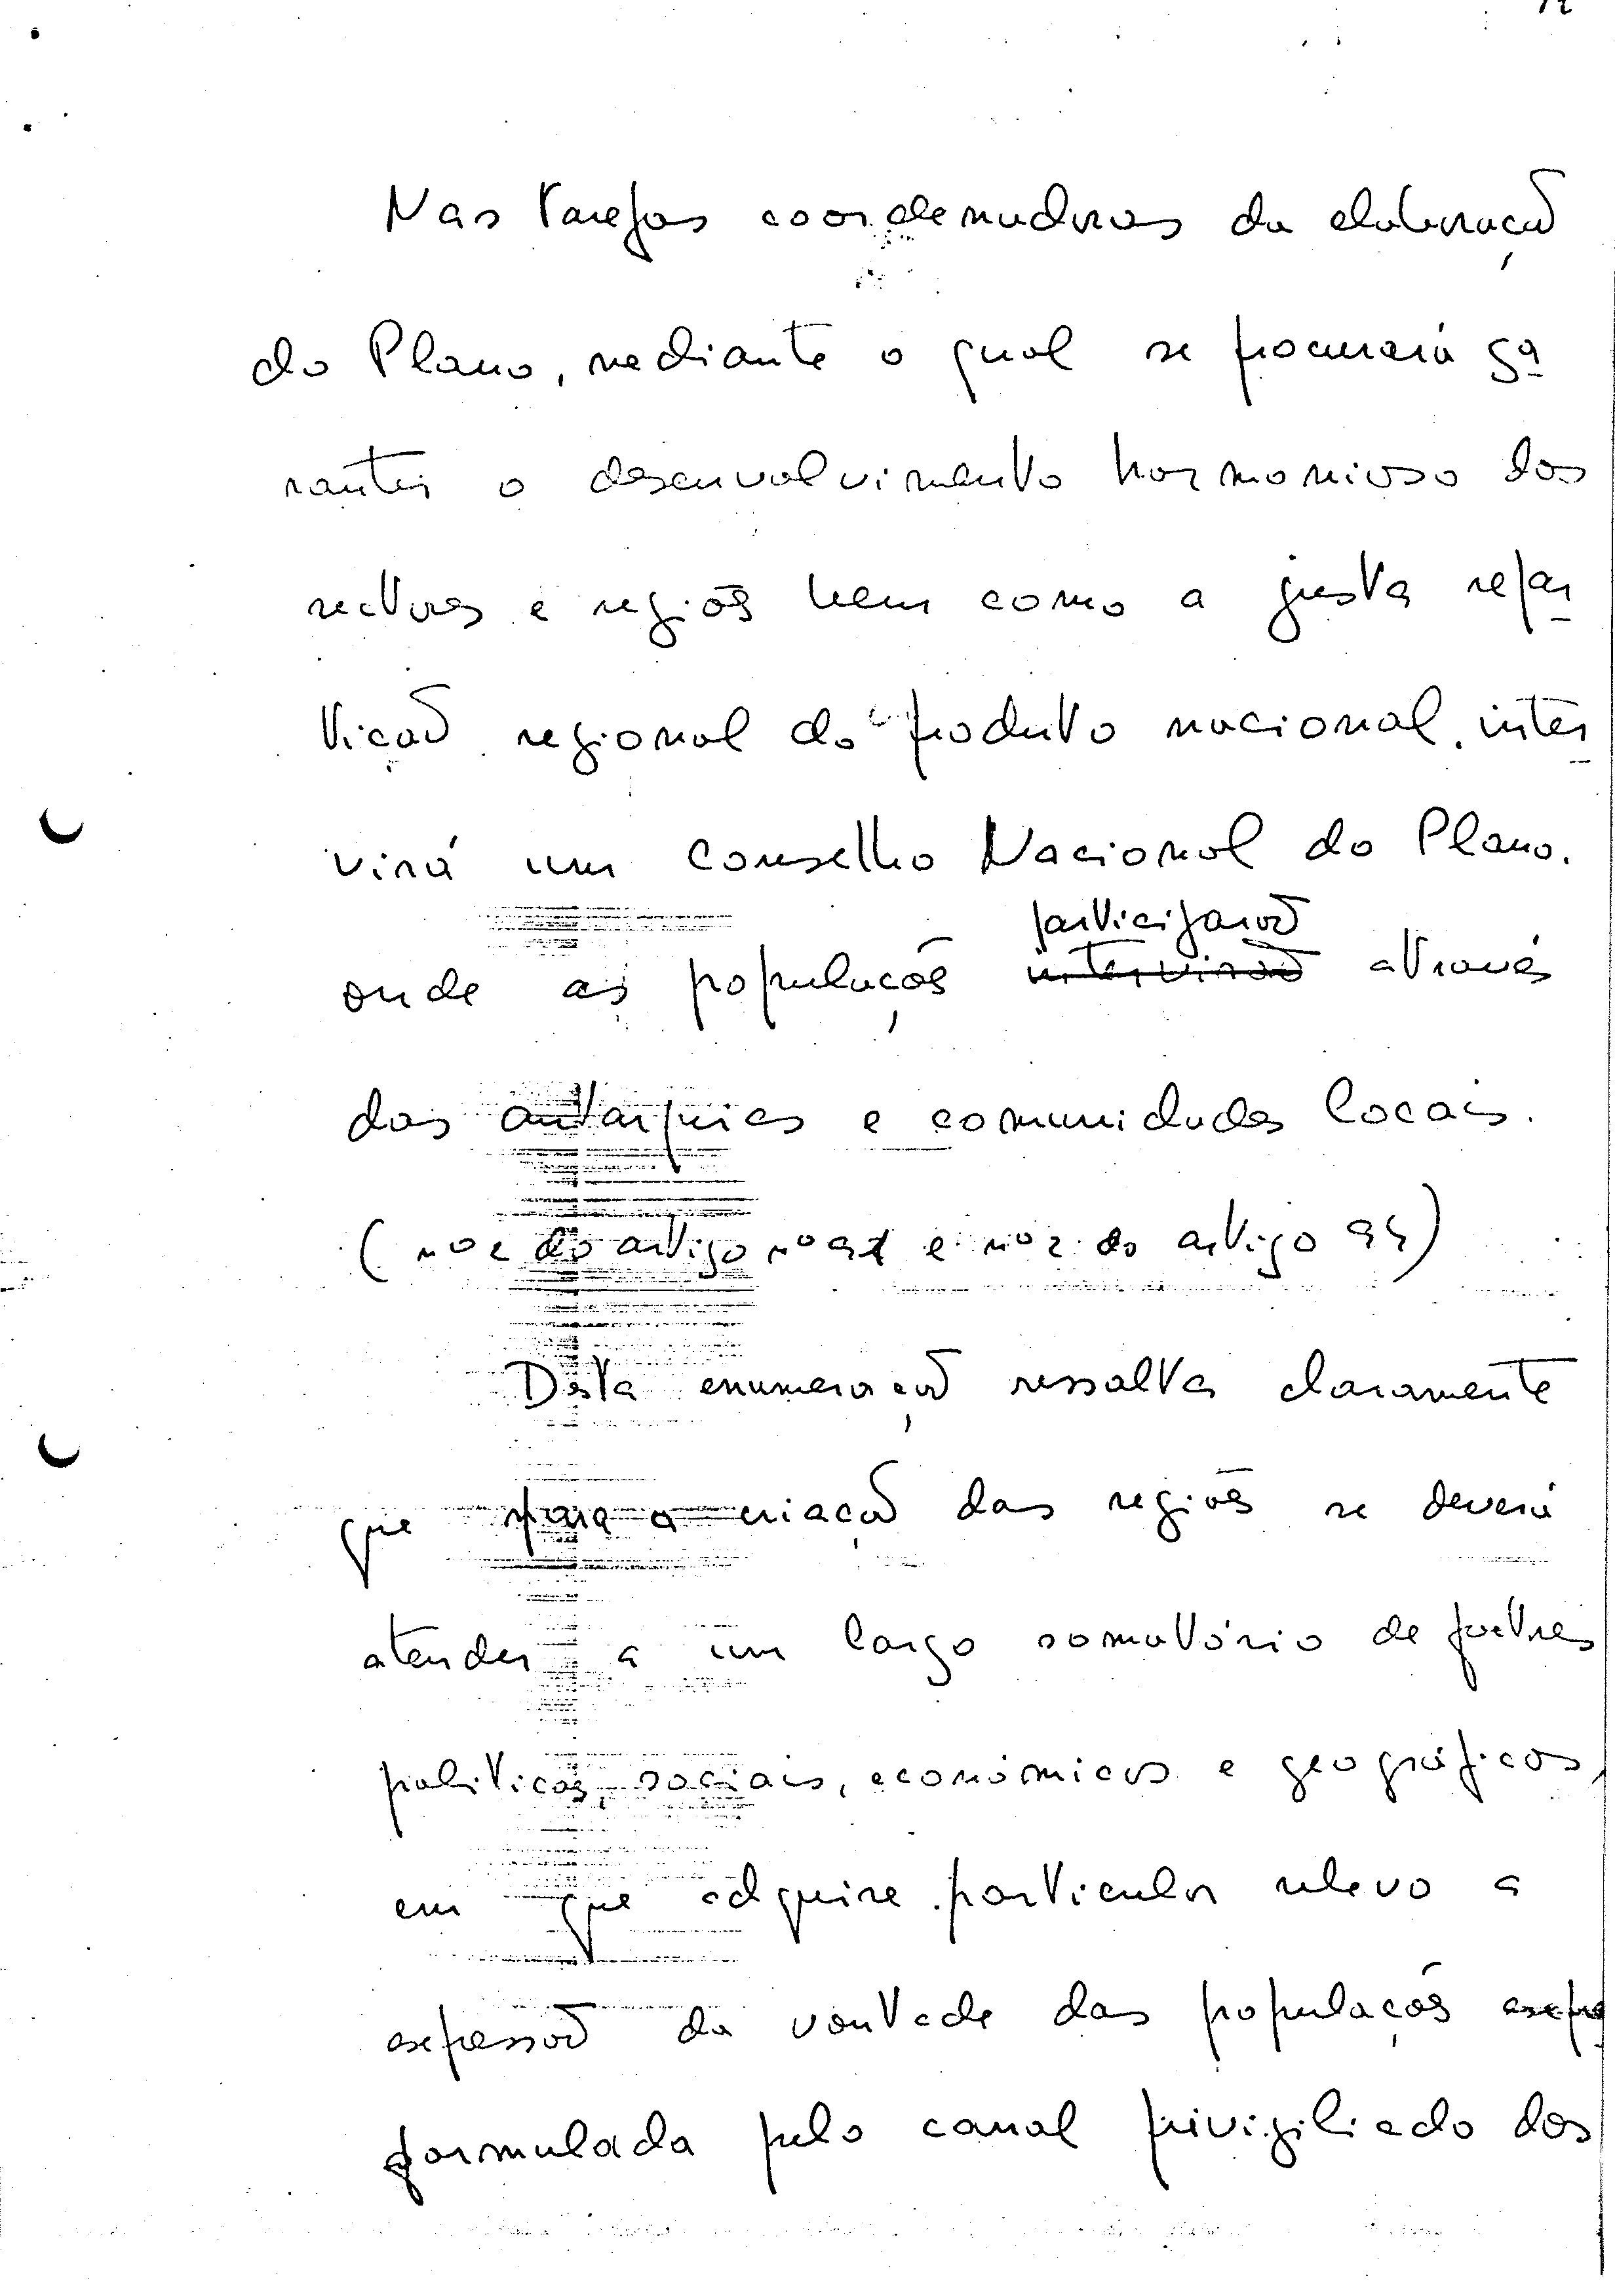 Nas tarefas coordenadoras da elaboração
do Plano, mediante o qual se procurará ga
rantir o desenvolvimento harmonioso dos
sectores e regiões bem como a justa repar
tição regional do produto nacional, inter
virá um Conselho Nacional do Plano.
participarão
onde as populações intervirão através
das autarquias e comunidades locais.
(nº 2 do artigo nº 92 e nº 2 do artigo 94)
Desta enumeração ressalta claramente
que para a criação das regiões se deverá
atender a um largo somatório de factores
políticos, sociais, económicos e geográficos,
em que adquire particular relevo a
expressão da vontade das populações expre
formulada pelo canal privigiliado dos